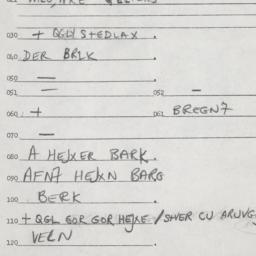 030 + QGLY STEDLAX .
040 DER BRLK .
050 —
051 — 052 —
060 + 061 BREGN7
070 —
080 A HEJXER BARK .
090 AFN7 HEJXN BARG
100 BERK .
110 + QGL GOR GOR HEJXE / SHER CU
120 VELN .